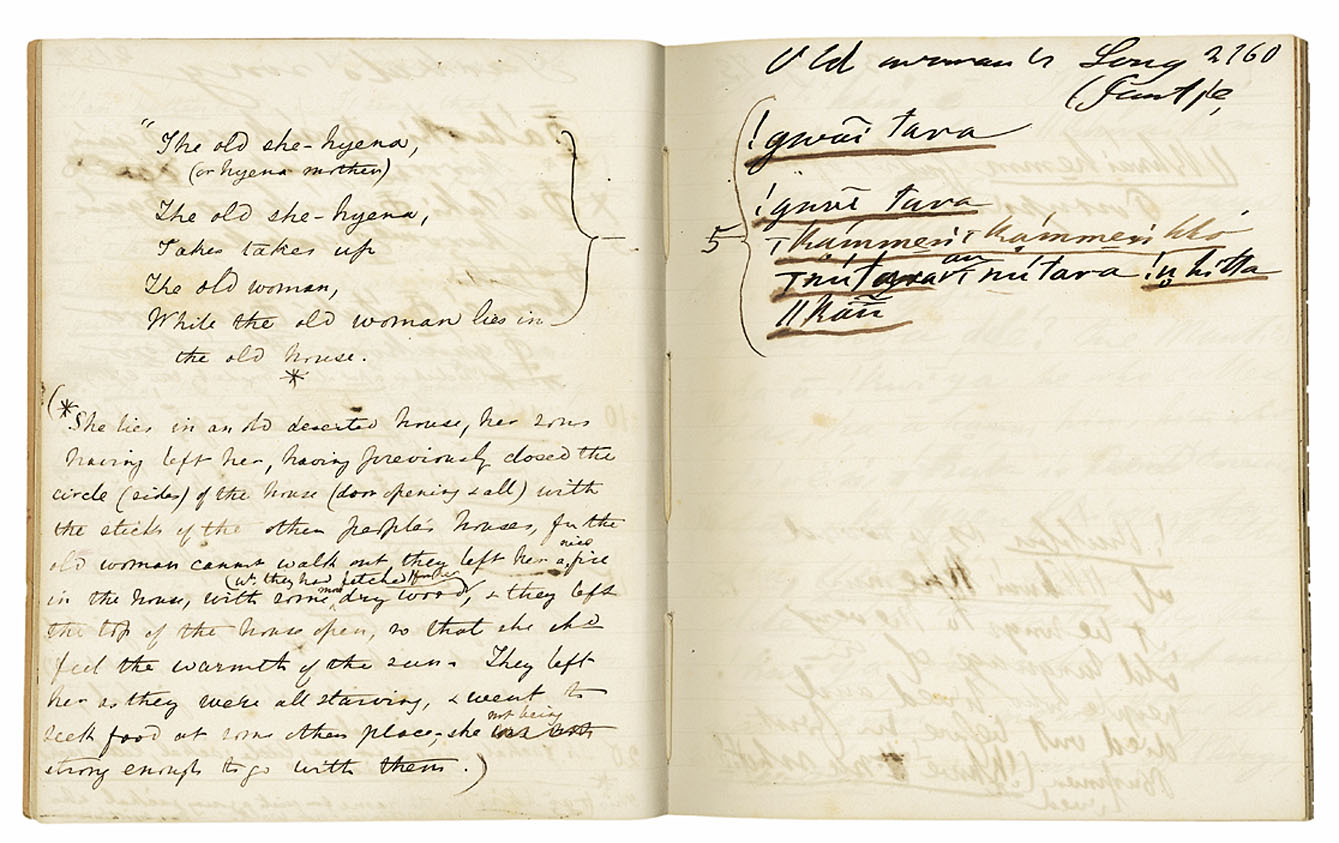 " The old she-hyena,
(or hyena mother)
The old she-hyena,
Takes takes up
The old woman,
While the old woman lies in
the old house.
*
(* She lies in an old deserted house, her sons
having left her, having previously closed the
circle (sides) of the house (door opening & all) with
the sticks of the other people's houses, for the
old woman cannot walk out they left her a nice fire
(wh. they had fetched for her)
in the house, with some more dry wood, & they left
the top of the house open, so that she shd
feel the warmth of the sun. They left
her as they were all starving, & went to
seek food at some other place, she not being was not
strong enough to go with them.)
Old woman's Song 2160
(Jantje,
!gwãi tara
!gwãi tara
5 ⊤kámmeni ⊤kámmeni hhó
⊤nútara au ⊤nútara !n̥hitta
ǁkãũ